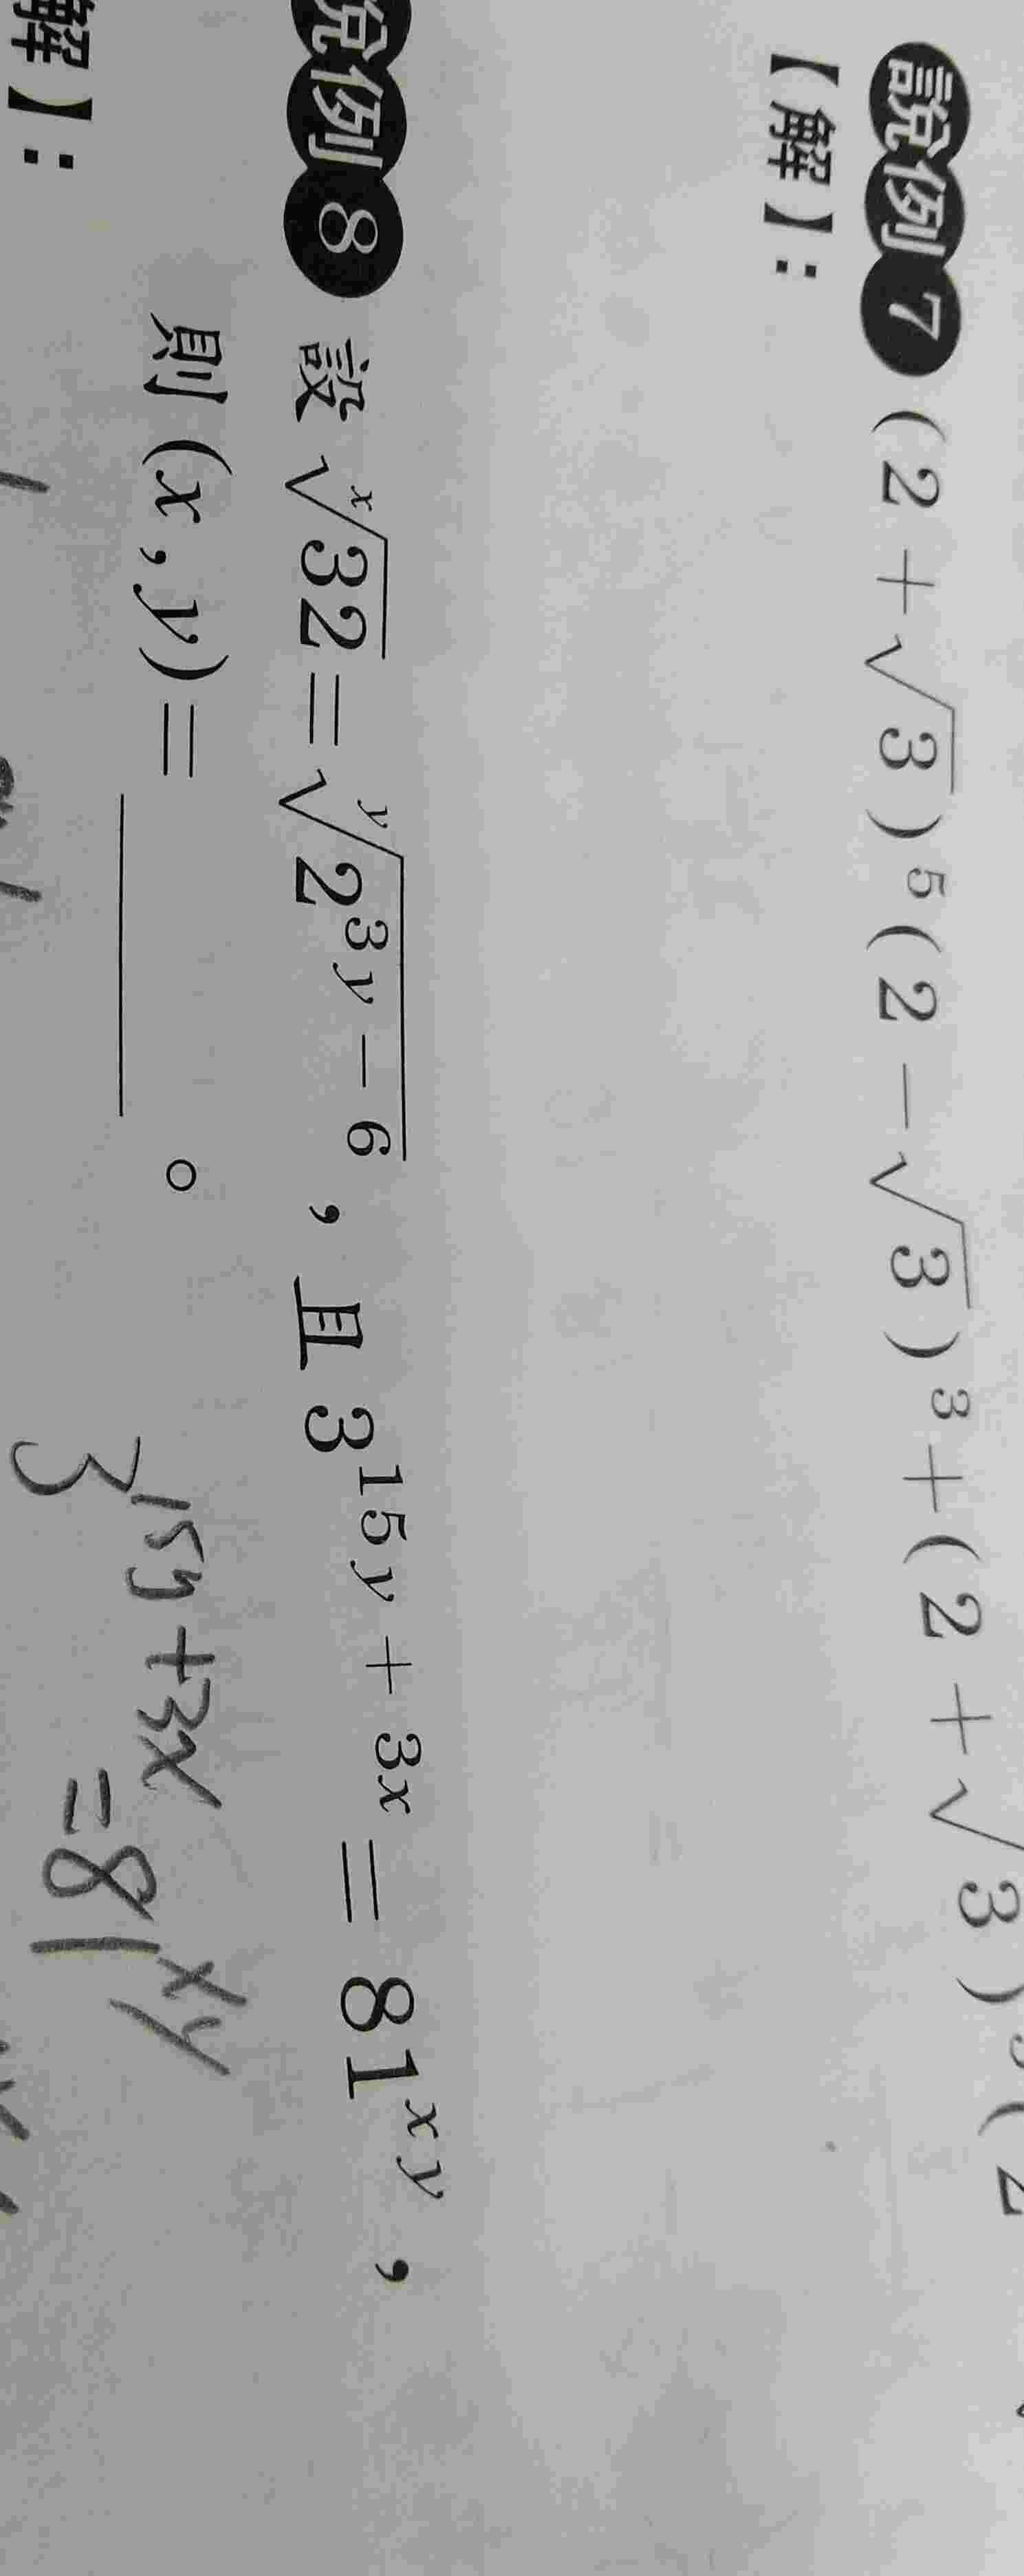 說例7 (2+√3)⁵(2-√3)³+(2+√3)³(2
【解】:
說例8 設 ˣ√32=ʸ√2^(3y-6),且 3^(15y+3x)=81^(xy),
則(x,y)=________。
3^(15y+3x)=81^(xy)
解】: